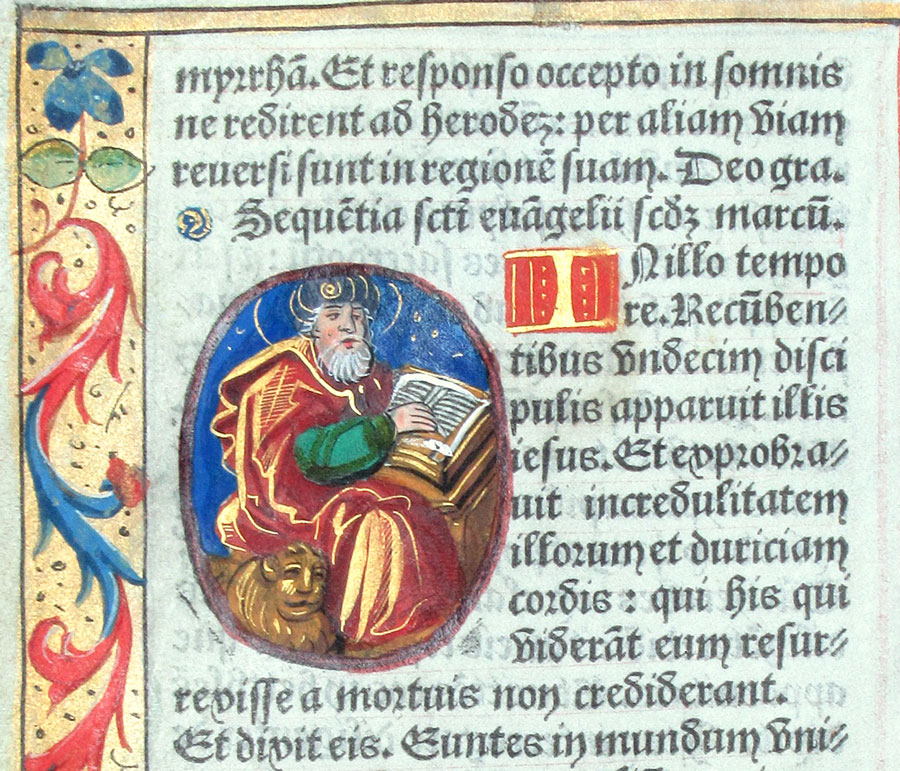 myrrhā. Et responso occepto in somnis
ne redirent ad herodeʒ: per aliam viam
reuersi sunt in regionē suam. Deo gra.
Sequētia scti evāgelii scdʒ marcū.
INillo tempo
re. Recūben⸗
tibus vndecim disci
pulis apparuit illis
iesus. Et exprobra⸗
uit incredulitatem
illorum et duriciam
cordis: qui his qui
viderāt eum resur⸗
rexisse a mortuis non crediderant.
Et dixit eis. Euntes in mundum vni⸗